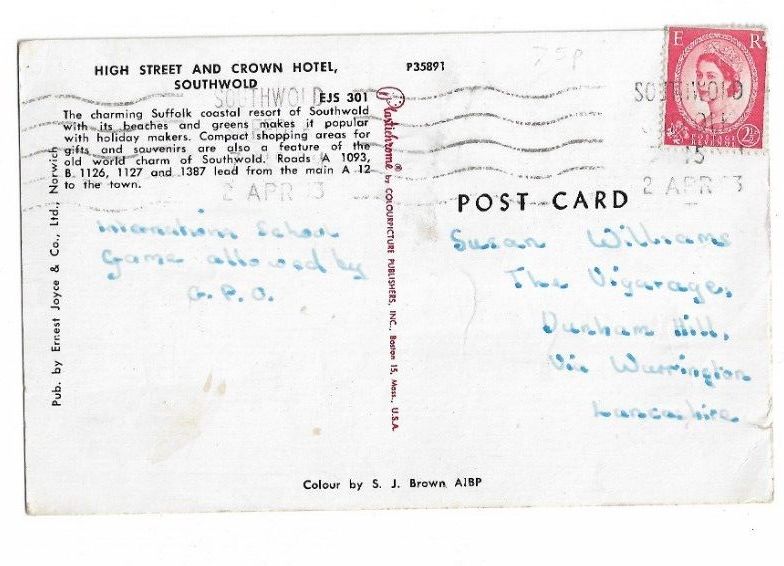 HIGH STREET AND CROWN HOTEL,
SOUTHWOLD
EJS 301
The charming Suffolk coastal resort of Southwold
with its beaches and greens makes it popular
with holiday makers. Compact shopping areas for
gifts and souvenirs are also a feature of the
old world charm of Southwold. Roads A 1093,
B. 1126, 1127 and 1387 lead from the main A 12
to the town.
Pub. by Ernest Joyce & Co., Ltd., Norwich
School
Game allowed by
G.P.O.
P35891
Plastichrome® by COLOURPICTURE PUBLISHERS, INC., Boston 15, Mass., U.S.A.
75p
E R
POSTAGE
REVENUE
2½
SOUTHWOLD
15
2 APR 3
SOUTHWOLD
2 APR 3
POST CARD
Susan Williams
The Vigarage,
Dunham Hill,
Via Warrington
Lancashire
Colour by S. J. Brown AIBP